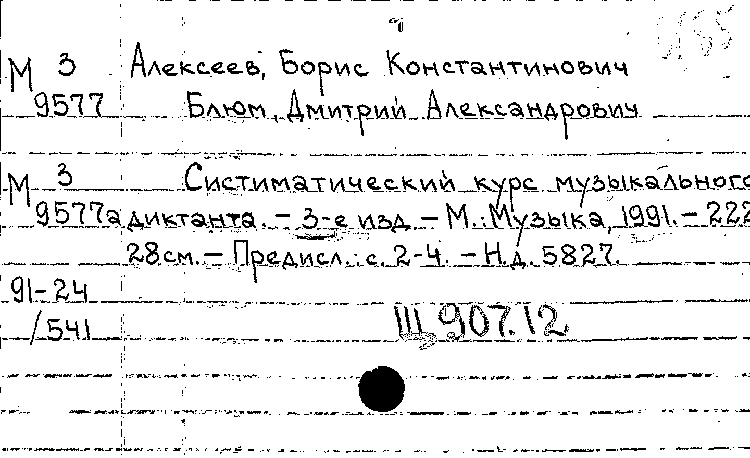 М 3 Алексеев, Борис Константинович
9577 Блюм, Дмитрий Александрович
М 3 Систиматический курс музыкального
9577а диктанта. – 3-е изд. – М.: Музыка, 1991. – 222
28см. – Предисл.: с. 2-4. – Н.д. 5827.
91-24
/541 Щ907.12